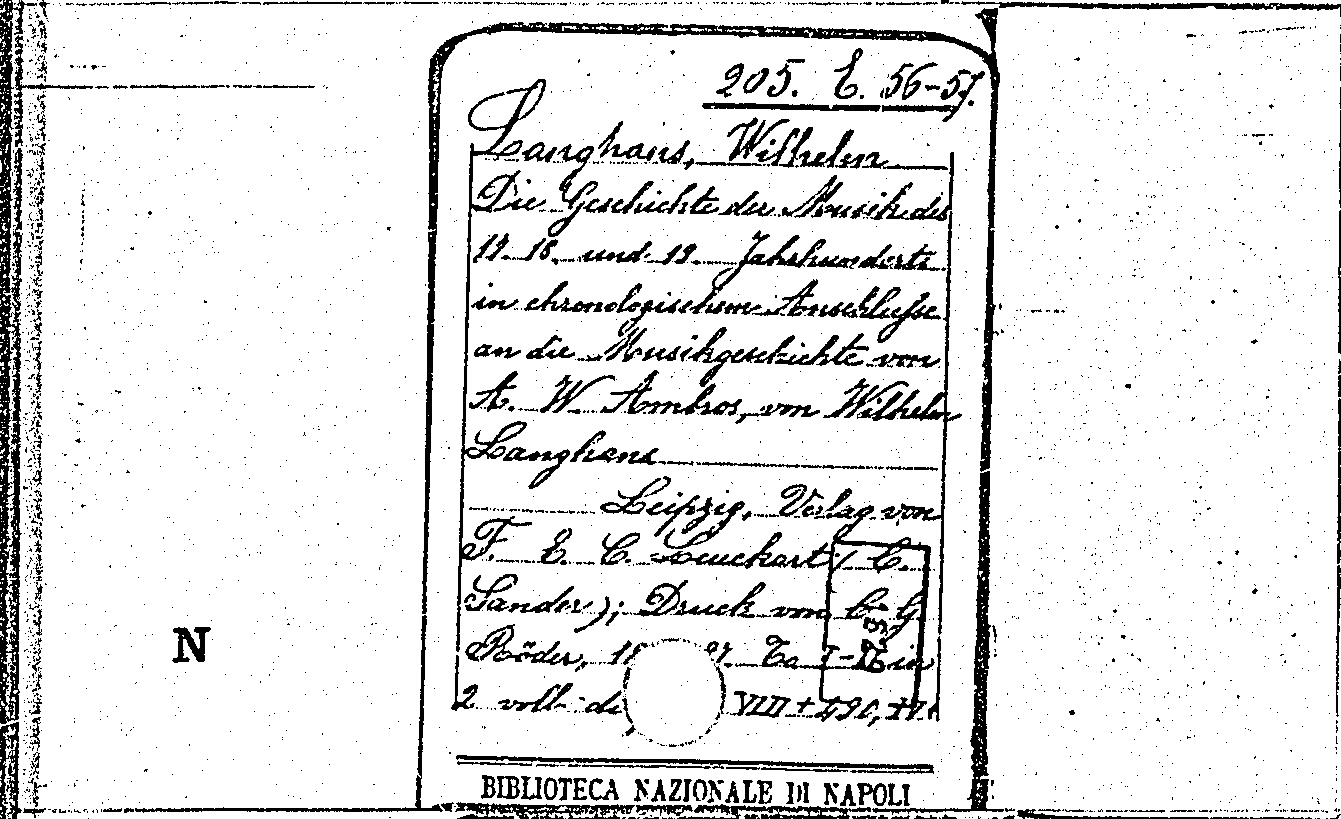 205. E. 56-57.
Langhans, Wilhelm
Die Geschichte der Musik des
17. 18. und 19. Jahrhunderts
in chronologischem Anschlusse
an die Musikgeschichte von
A. W. Ambros, von Wilhelm
Langhans
Leipzig, Verlag von
F. E. C. Leuckart (C.
Sander); Druck von C. G.
Röder, 18 87. To I-II in
2 voll. di VIII + 490,
N
BIBLIOTECA NAZIONALE DI NAPOLI